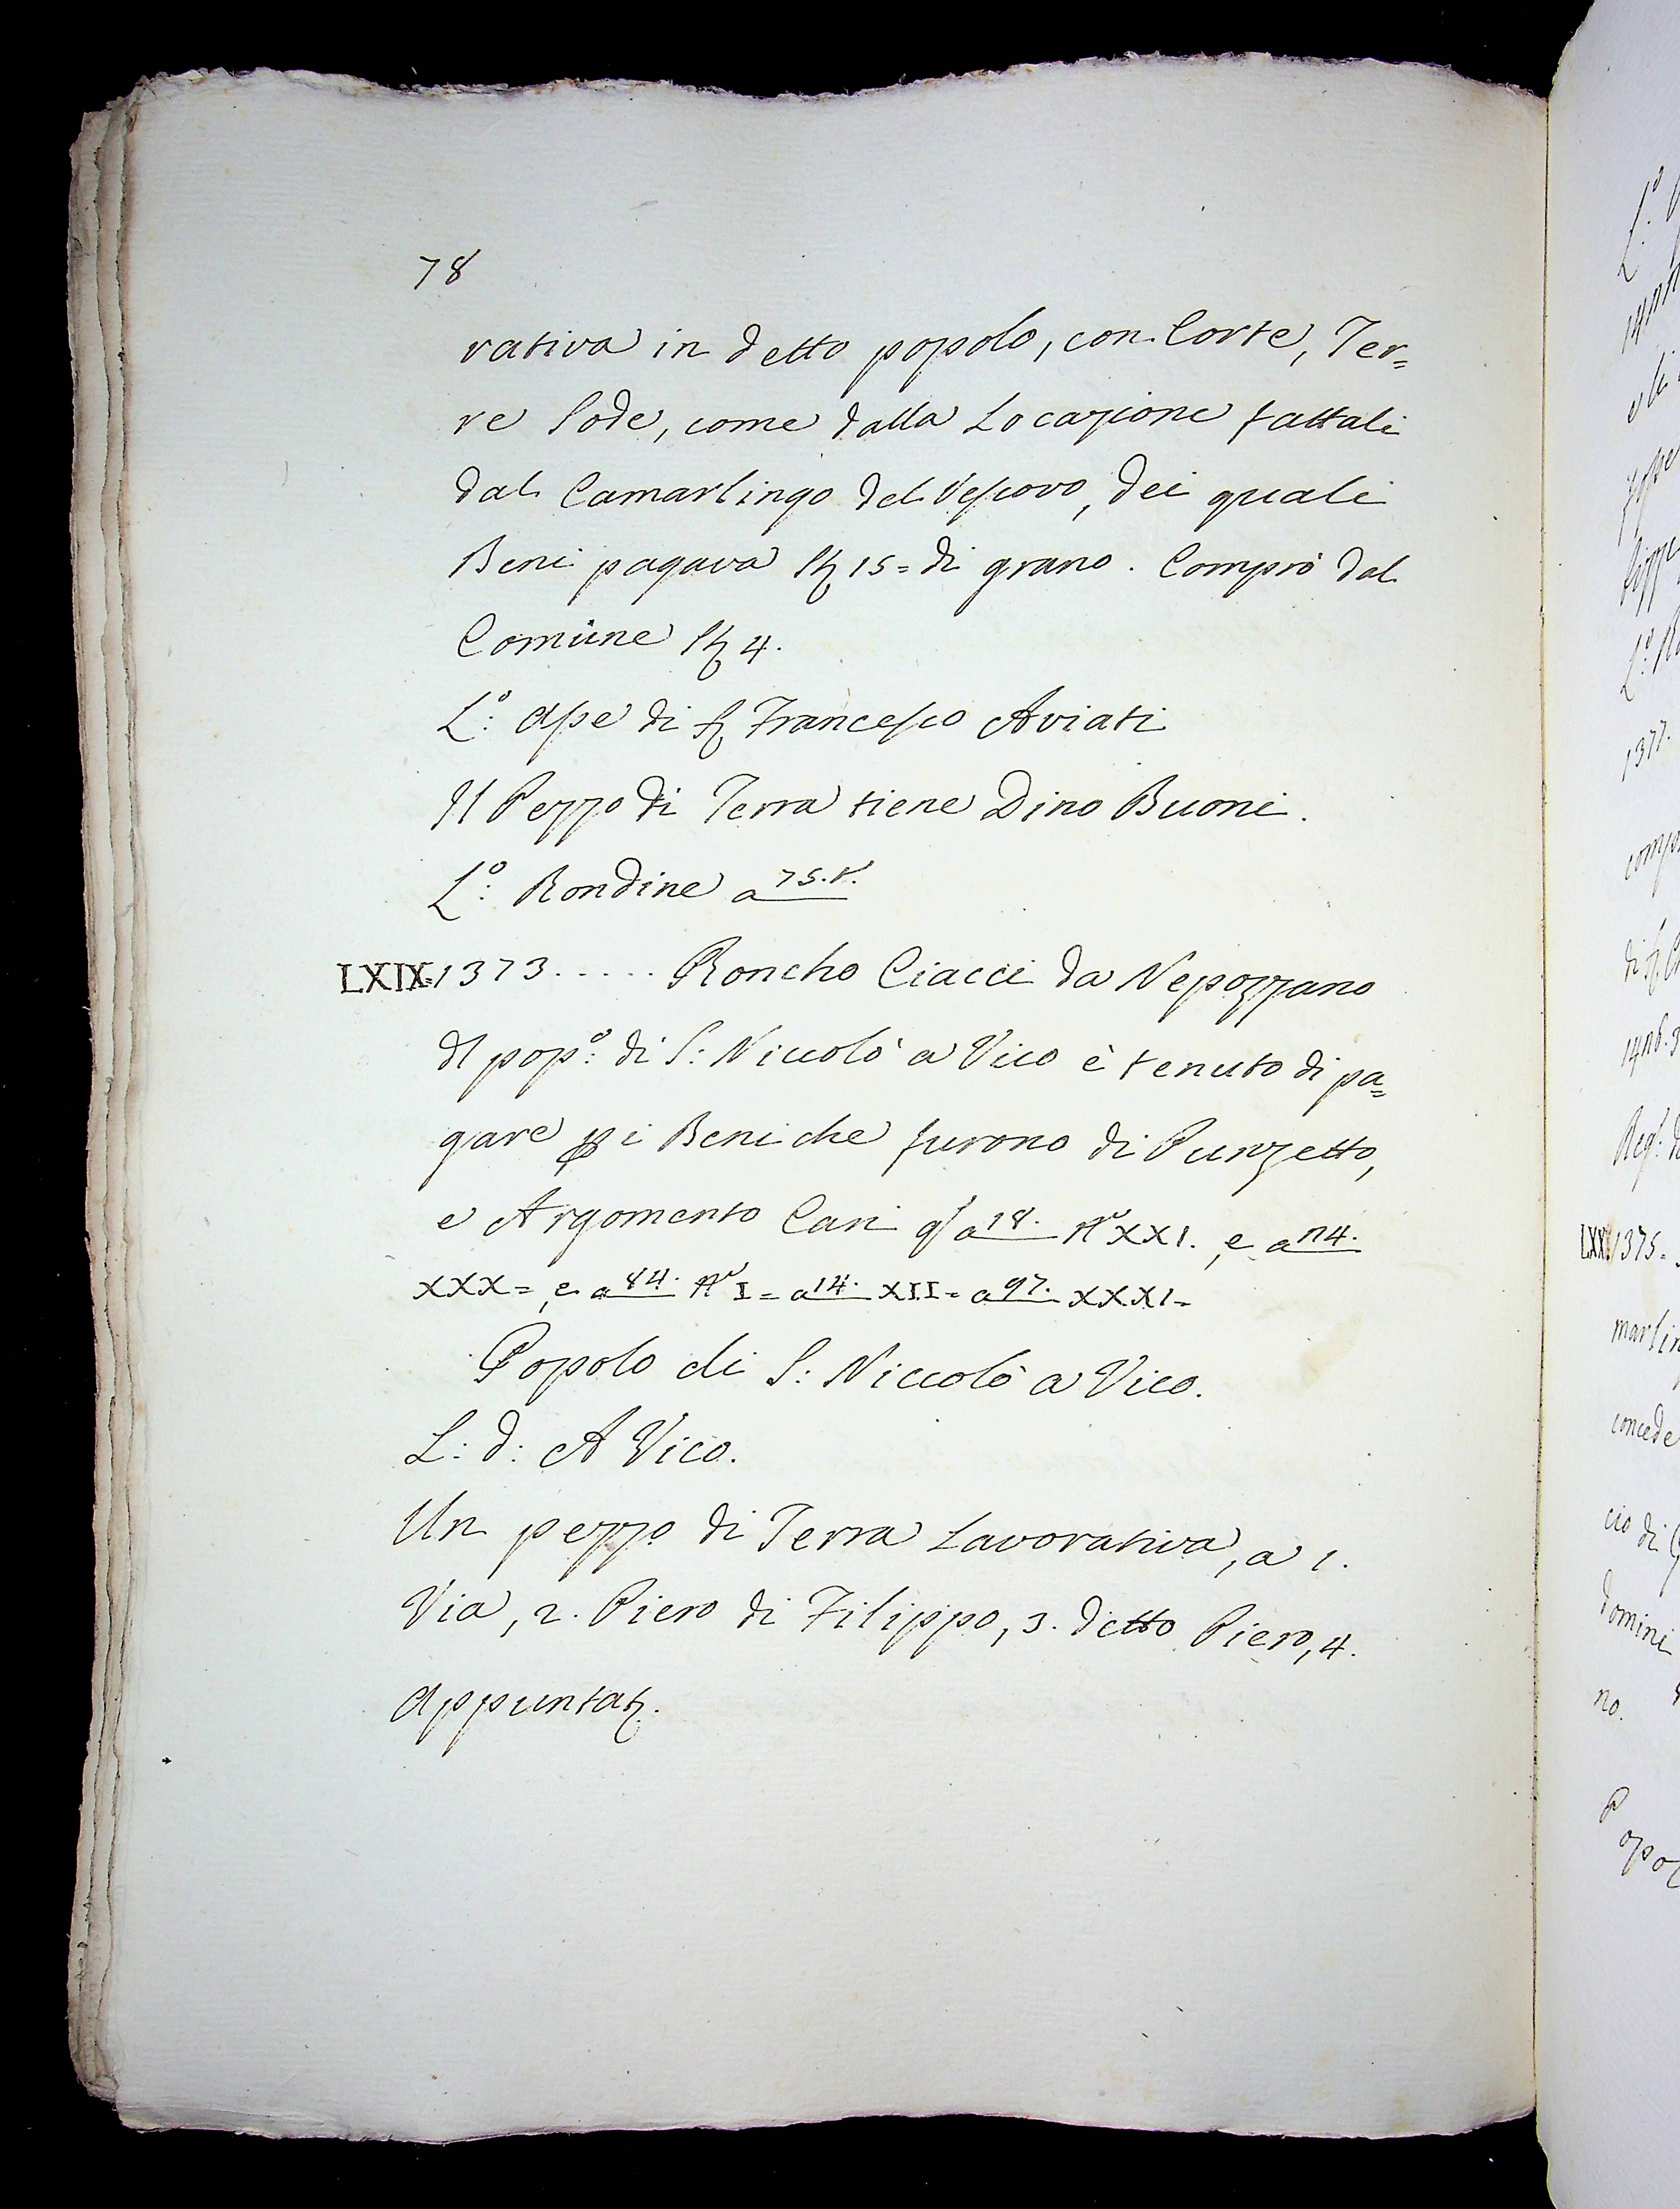 78
rativa in detto popolo, con Corte, Ter=
re Sode, come dalla Locazione fattali
dal Camarlingo del Vescovo, dei quali
Beni pagava St 15= di grano. Comprò dal
Comune St 4.
L.º Ape di S Francesco Aviati
Il Pezzo di Terra tiene Dino Buoni.
L.º Rondine a 75.t.
LXIX=1373..... Roncho Ciacci da Nepozzano
dl pop.º di S: Niccolò a Vico è tenuto di pa=
gare p i Beni che furono di Punzetto,
e Argomento Cari qs a 18. Nº XXI. e a 114.
XXX=, e a 84. Nº I= a 14. XII= a 97. XXXI=
Popolo di S: Niccolò a Vico.
L: d: A Vico.
Un pezzo di Terra Lavorativa, a 1.
Via, 2. Piero di Filippo, 3. detto Piero, 4.
Appuntat.
L.º
1377.
LXX=1375=
marlin
concede
cio di
domini
no.